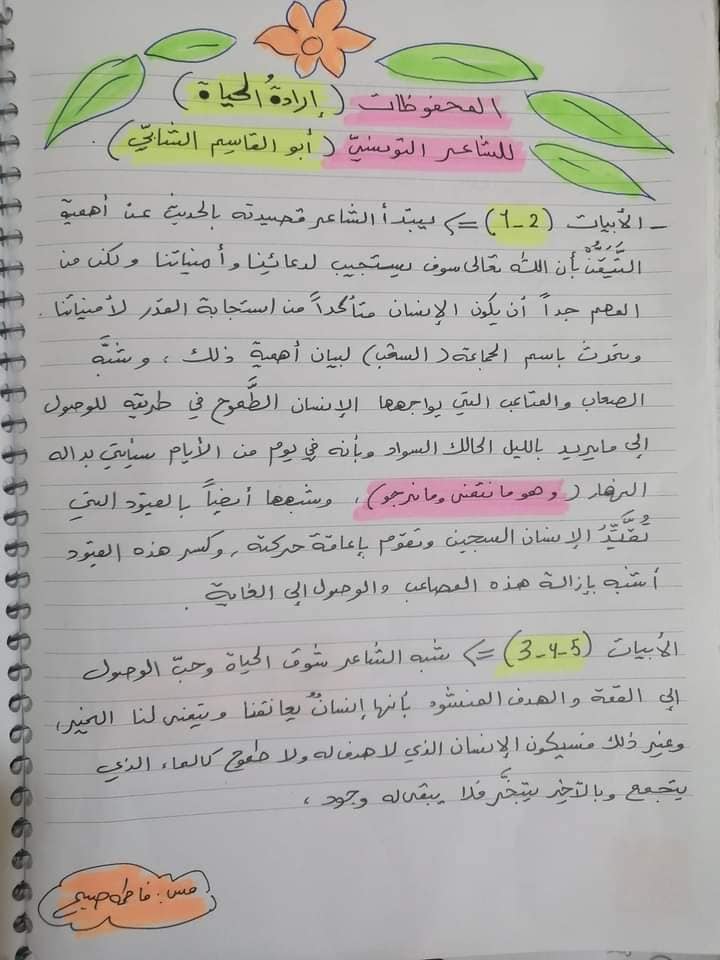 المحفوظات (إرادةُ الحياة)
للشاعر التونسيّ (أبو القاسم الشابّي).
- الأبيات (1-2) <= يبتدأ الشاعر قصيدته بالحديث عن أهمية
التَّيَقُّنْ بأن الله تعالى سوف يستجيب لدعائينا وأمنياتنا ولكن من
المهم جداً أن يكون الإنسان متأكداً من استجابة القدر لأمنياتنا.
وتحدث باسم الجماعة (الشعب) لبيان أهمية ذلك، وشبَّه
الصعاب والمتاعب التي يواجهها الإنسان الطَّموح في طريقه للوصول
إلى مايريد بالليل الحالك السواد وبأنه في يوم من الأيام سيأتي بداله
النهار (وهو ما نتمنى وما نرجو)، وشبهها أيضاً بالقيود التي
تُقَيِّدُ الإنسان السجين وتقوم بإعاقة حركته، وكسر هذه القيود
أشبه بإزالة هذه المصاعب والوصول إلى الغاية.
الأبيات (3-4-5) <= شبه الشاعر شوق الحياة وحبّ الوصول
إلى القمة والهدف المنشود بأنها إنسانٌ يعانقنا ويتمنى لنا الخير،
وغير ذلك فسيكون الإنسان الذي لا هدف له ولا طموح كالماء الذي
يتجمع وبالآخير يتبخَّر فلا يبقى له وجود،
مس: فاطمة صبيح